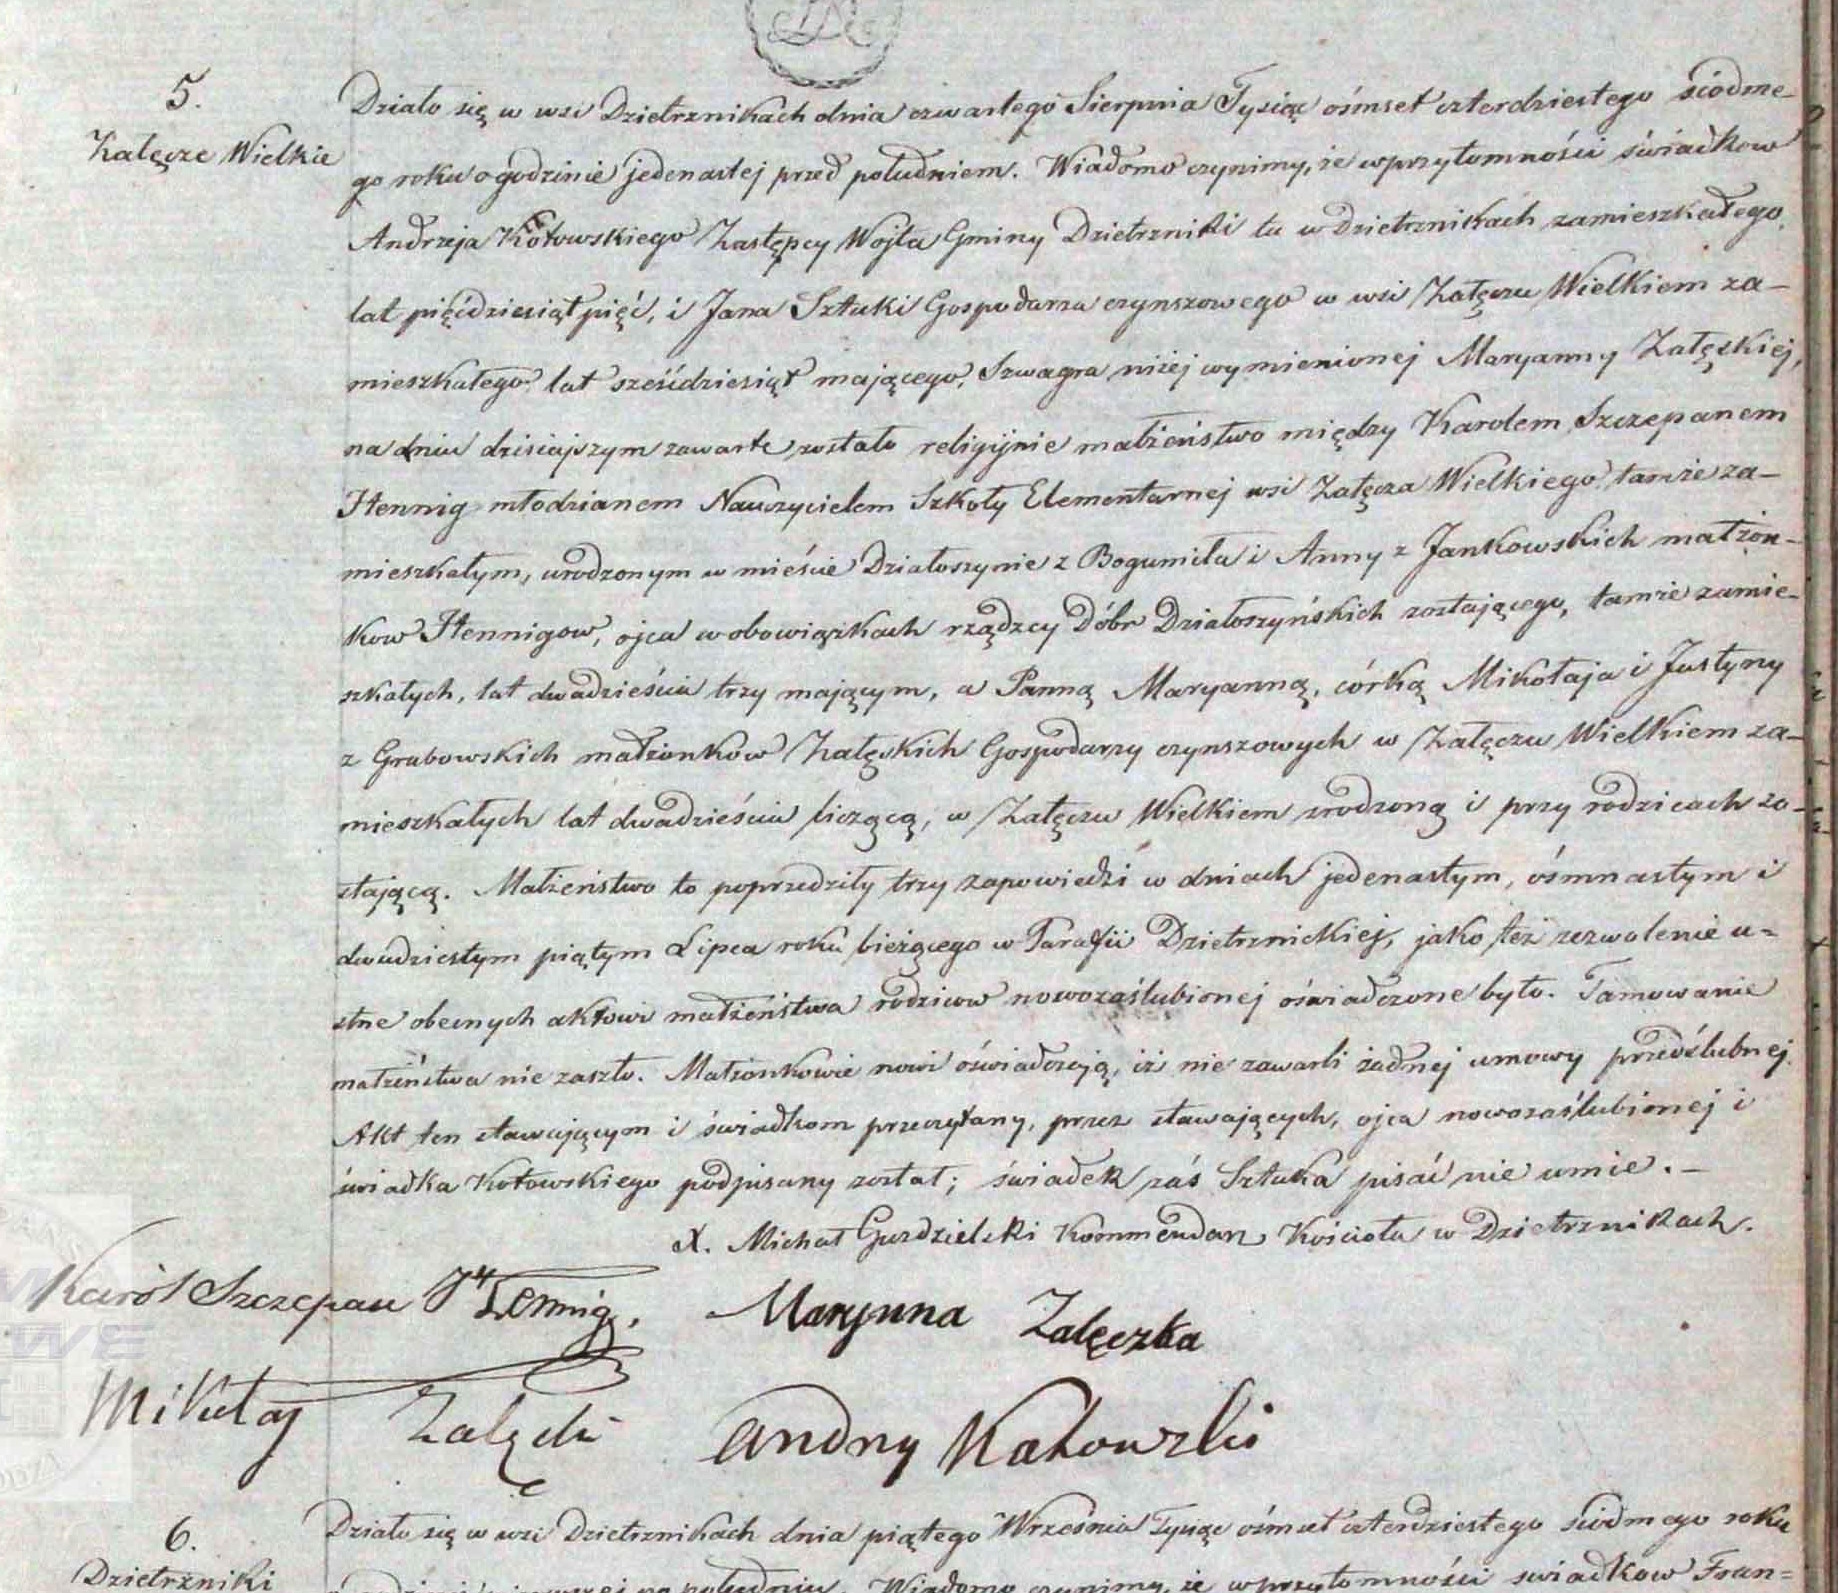 5.
Załęcze Wielkie
Działo się w wsi Dzietrznikach dnia czwartego Sierpnia Tysiąc ośmset czterdziestego siódme-
go roku o godzinie jedenastej przed południem. Wiadomo czynimy, że w przytomności świadkow
Andrzeja Kotowskiego Zastępcy Wojta Gminy Dzietrzniki tu w Dzietrznikach zamieszkałego,
lat pięćdziesiąt pięć, i Jana Sztuki Gospodarza czynszowego w wsi Załęczu Wielkiem za-
mieszkałego, lat sześćdziesiąt mającego, Szwagra niżej wymienionej Maryanny Załęckiej,
na dniu dzisiajszym zawarte zostało religijnie małżeństwo między Karolem Szczepanem
Hennig młodzianem Nauczycielem Szkoły Elementarnej wsi Załęcza Wielkiego tamże za-
mieszkałym, urodzonym w mieście Działoszynie z Bogumiła i Anny z Jankowskich małżon-
kow Hennigow, ojca w obowiązkach rządzcy Dóbr Działoszyńskich zostającego, tamże zamie-
szkałych, lat dwadzieścia trzy mającym, a Panną Maryanną, córką Mikołaja i Justyny
z Grabowskich małżonków Załęckich Gospodarzy czynszowych w Załęczu Wielkiem za-
mieszkałych lat dwadzieścia liczącą, w Załęczu Wielkiem zrodzoną i przy rodzicach zo-
stającą. Małżeństwo to poprzedziły trzy zapowiedzi w dniach jedenastym, ośmnastym i
dwudziestym piątym Lipca roku bieżącego w Parafii Dzietrznickiej, jako też zezwolenie u=
stne obecnych aktowi małżeństwa rodzicow nowozaślubionej oświadczone było. Tamowanie
małżeństwa nie zaszło. Małżonkowie nowi oświadczają, iż nie zawarli żadnej umowy przedślubnej.
Akt ten stawającym i świadkom przeczytany, przez stawających, ojca nowozaślubionej i
świadka Kotowskiego podpisany został; świadek zaś Sztuka pisać nie umie. –
X. Michał Gurdzielski Kommendarz Kościoła w Dzietrznikach.
Karól Szczepan Hennig. Marynna Zalęczka
Mikułaj Zalęcki Andrzy Katowzki
6.
Dzietrzniki
Działo się w wsi Dzietrznikach dnia piątego Września Tysiąc ośmset czterdziestego siódmego roku
po południu. Wiadomo czynimy, że w przytomności swiadkow Fran=